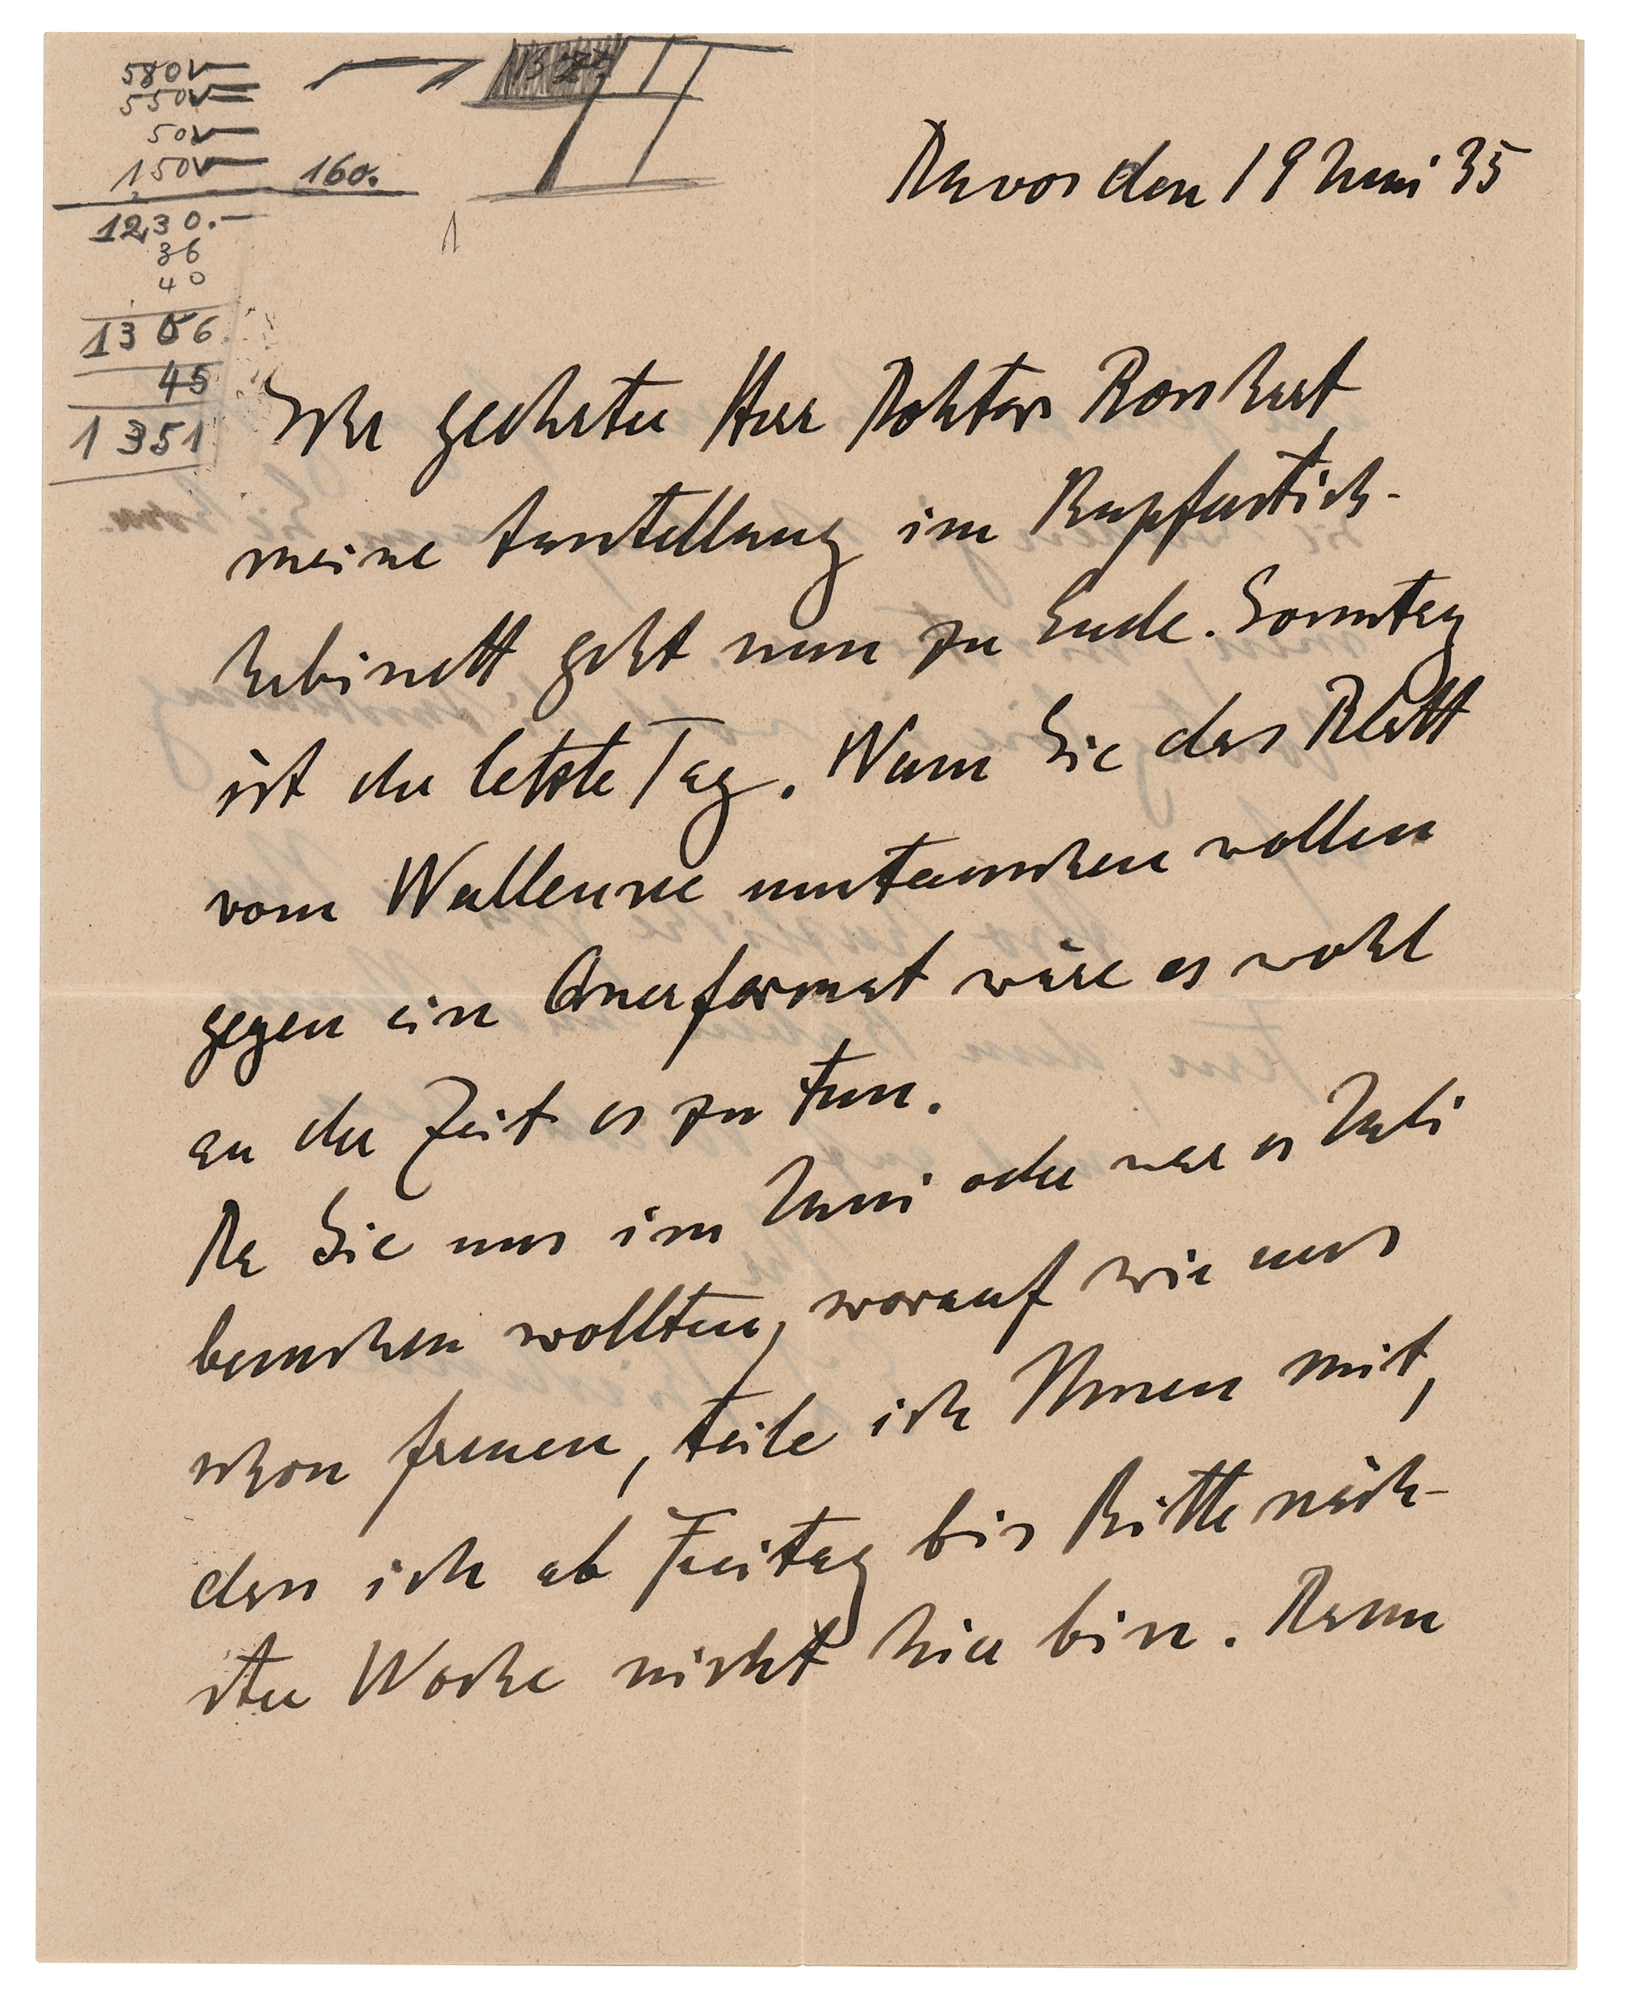 580.—
550.—
50.—
150.—
160.
1230.—
36
40
1306
45
1351
Davos den 19 Juni 35
Sehr geehrter Herr Doktor
meine Ausstellung im Kupferstich-
kabinett geht nun zu Ende. Sonntag
ist der letzte Tag. Wenn Sie das Blatt
vom Wallensee umtauschen wollen
gegen ein Querformat wäre es wohl
an der Zeit es zu tun.
Da Sie uns im Juni oder war es Juli
besuchen wollten, worauf wir uns
schon freuen, teile ich Ihnen mit,
dass ich ab Freitag bis Mitte näch-
ster Woche nicht hier bin. Dann